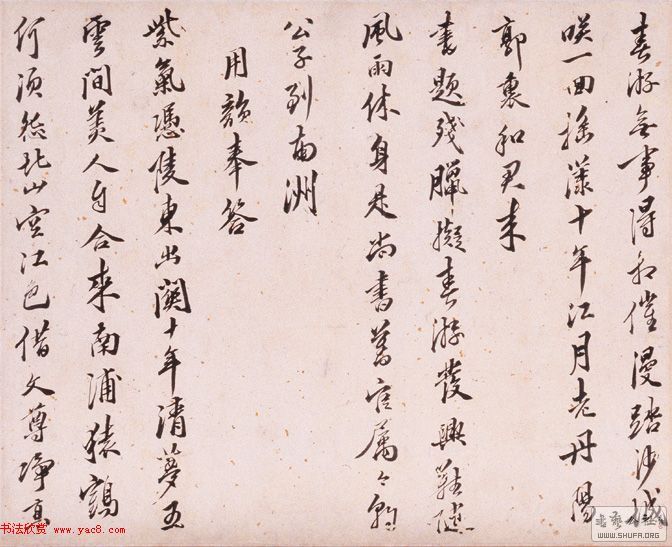 春游無事得相催漫踏沙
咲一曲搖漾十年江月老丹陽
郭裏和君來
書題殘臘擬春游發興難隨
風雨休身是尚書舊官屬々
公子到南洲
用韻奉答
紫氣憑陵東出關十年清夢五
雲間美人自合來南浦猿鶴
何須怨北山空江色借文尊淨高
书法欣赏
www.yac8.com
WWW.SHUFA.ORG